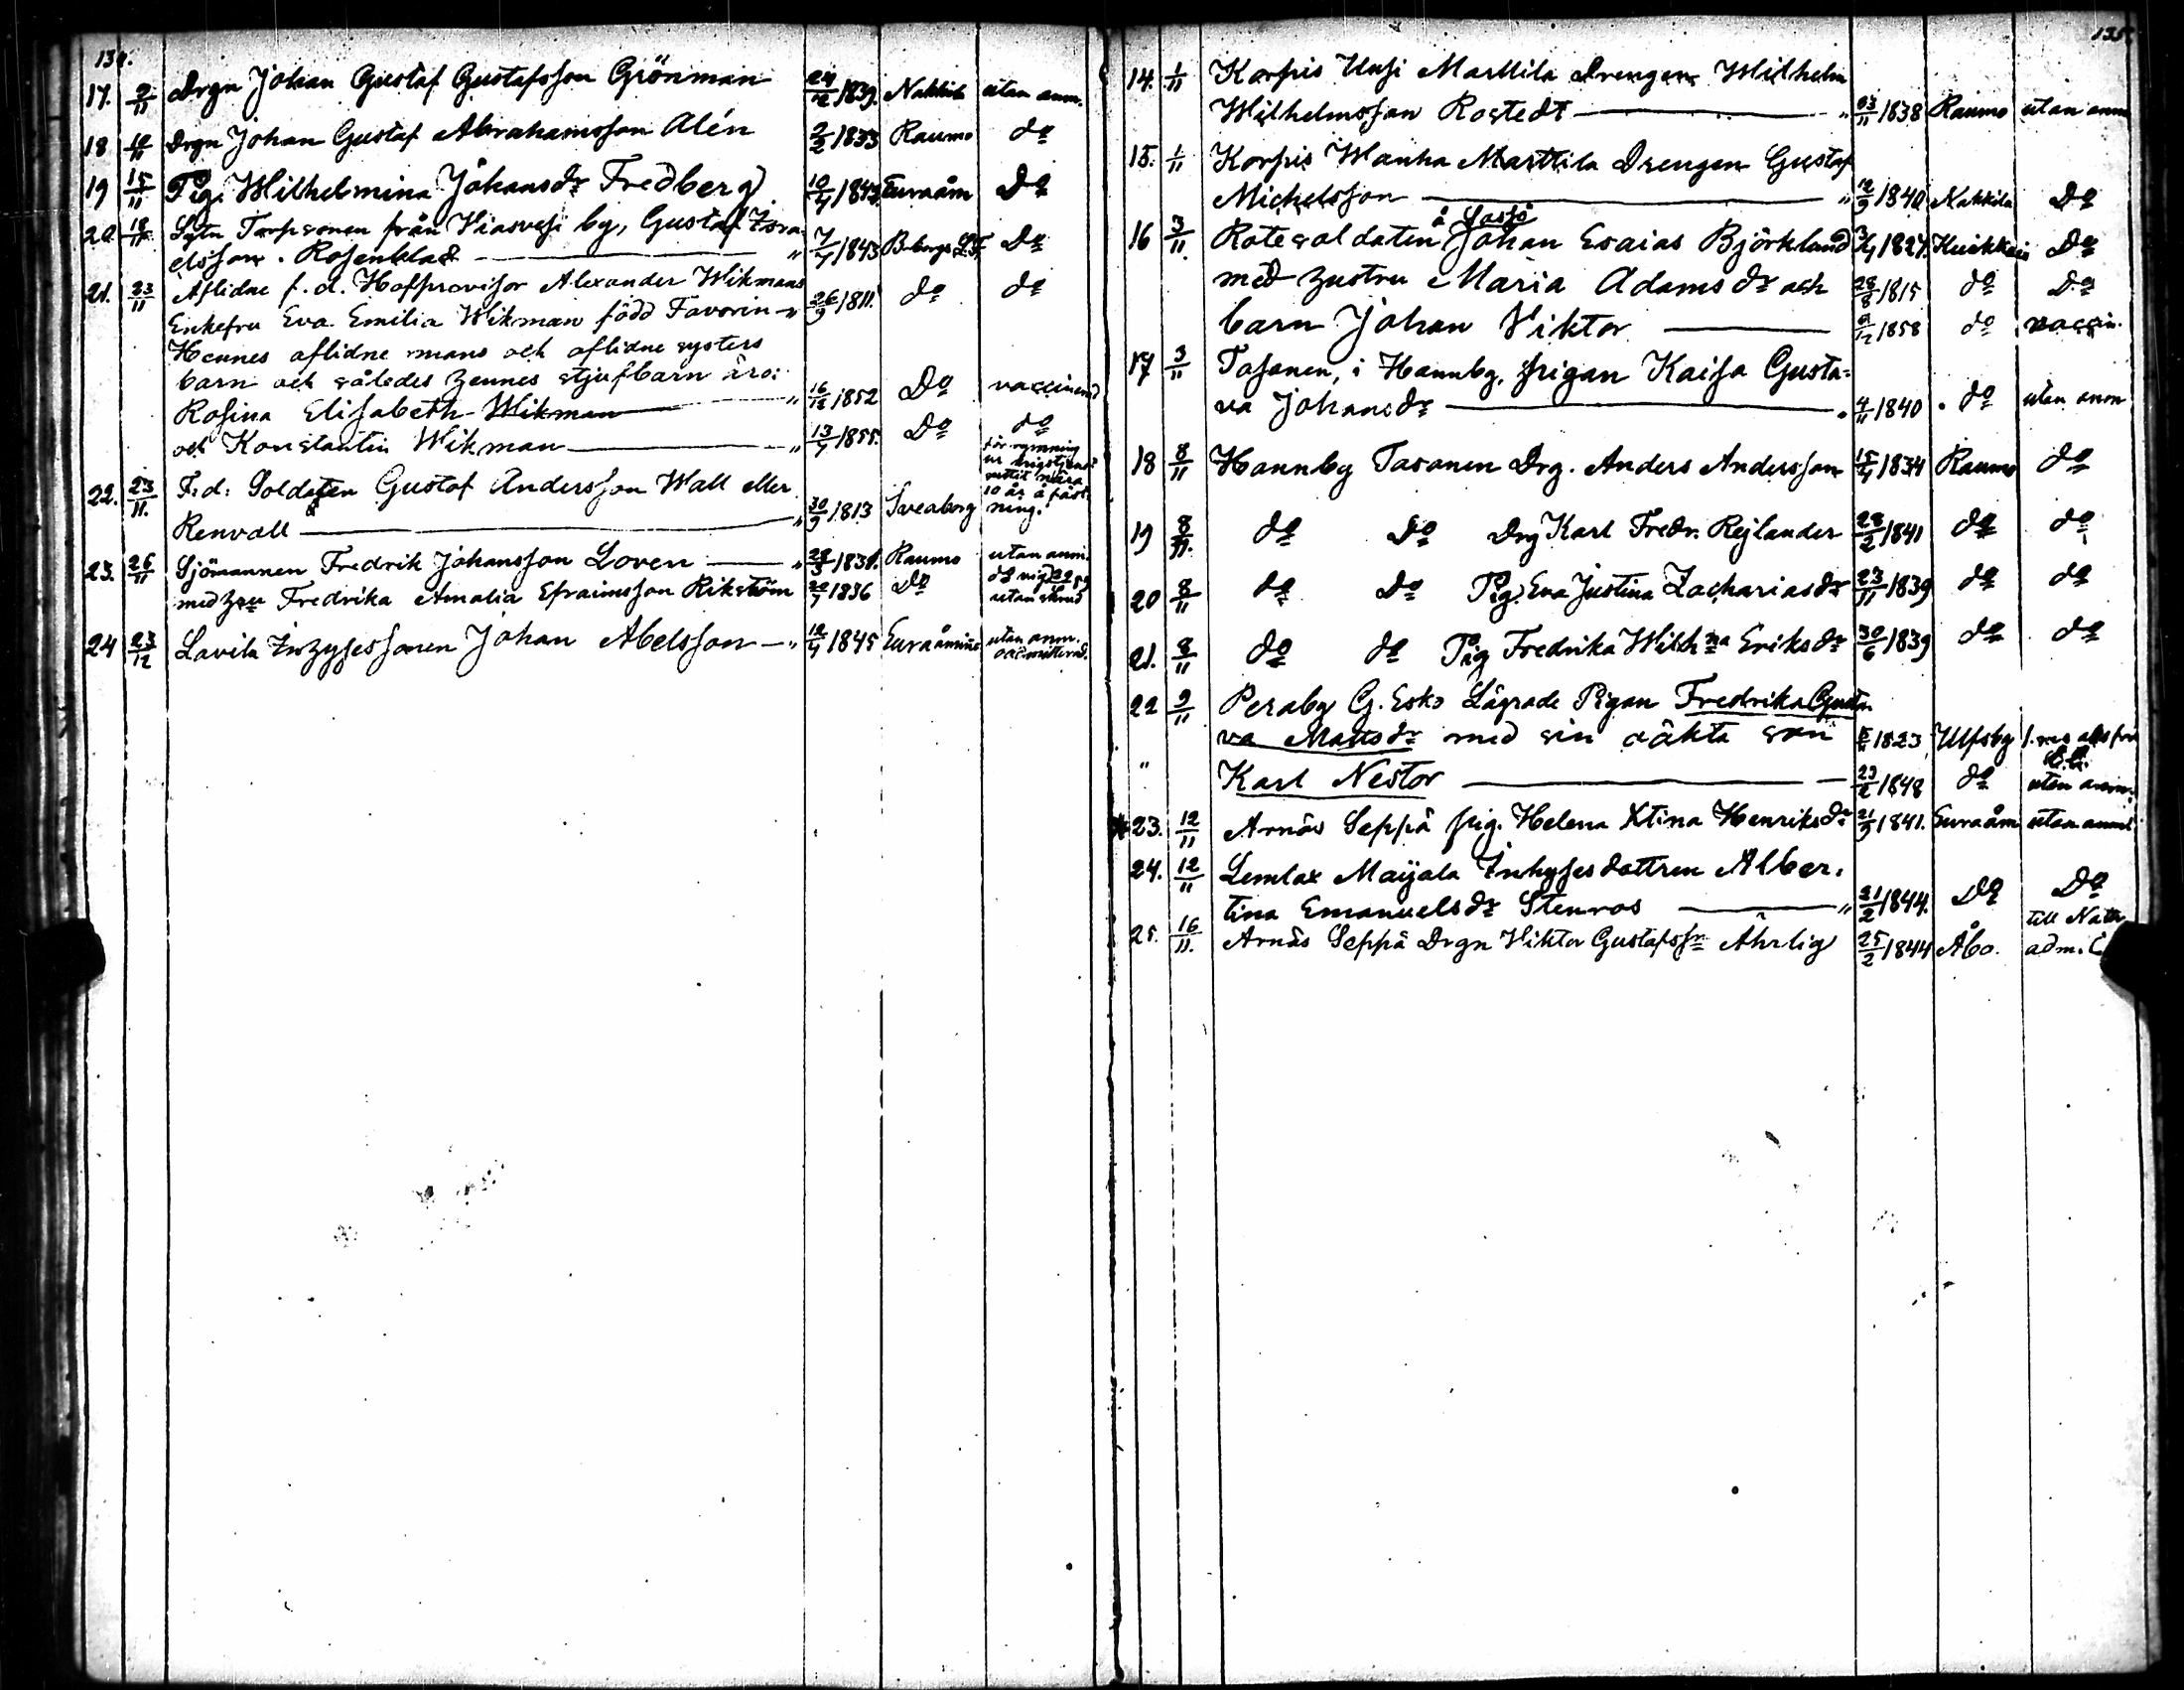 17. 9/11 Drgn Johan Gustaf Gustafsson Grönman 24/12 1839. Nakkila utan anm.
18 10/11 Drgn Johan Gustaf Abrahamsson Alén 9/2 1833 Raumo do
19 15/11 Pig. Wilhelmina Johansdr Fredberg 10/4 1843 Euraåm Do
20 18/11 Torpsonen från Viasvesi by, Gustaf Isra-
elsson. Rosenblad " 7/7 1843 B-borgs L.F. Do
21. 23/11 Aflidne f.d. Hofprovisor Alexander Wikmans
Enkefru Eva Emilia Wikman född Favorin " 26/9 1811. do do
Hennes aflidne mans och aflidne systers
barn och således hennes stjufbarn äro:
Rosina Elisabeth Wikman " 16/12 1852 Do vaccinerad
och Konstantin Wikman " 13/7 1855. Do do
22. 23/11. F.d. Soldaten Gustaf Andersson Wall eller för rymning ur krigstjenst varit nära 10 år å fäst-
Renvall " 30/9 1813 Sveaborg ning.
23. 26/11 Sjömannen Fredrik Johansson Loven " 28/3 1831. Raumo utan anm.
med hu Fredrika Amalia Efraimsson Rikström 20/7 1836 Do
24 23/12 Lavila Inhysessonen Johan Abelsson " 12/4 1845 Euraåminne utan anm.
135.
14. 1/11 Korpis Uusi Marttila Drengen Wilhelm
Wilhelmsson Rostedt " 23/11 1838 Raumo utan anm
15. 1/11 Korpis Wanha Marttila Drengen Gustaf
Michelsson " 12/9 1840 Nakkila Do
16 3/11. Rotesoldaten å Johan Esaias Björklund 3/4 1827. Do
med hustru Maria Adamsdr och 28/8 1815 do Do
barn Johan Viktor 9/12 1858 do vaccin.
17 3/11 Tasanen, i Hannby, pigan Kaisa Gusta-
va Johansdr " 4/11 1840 do utan anm
18 8/11 Hannby Tasanen Drg. Anders Andersson 15/4 1834 Raumo do
19 8/11. do Do Drg Karl Fredr. Rejlander 28/2 1841 do do
20 8/11 do Do Pig. Eva Justina Zachariasdr 23/11 1839 do do
21. 8/11 do do Pig Fredrika Wilhna Eriksdr 30/6 1839 do do
22 9/11 Peraby G. Esko Lägrade Pigan Fredrika Gusta-
va Mattsdr med sin oäkta son 1823 Ulfsby
" Karl Nestor 23/2 1848 do utan anm.
23. 12/11 Arnäs Seppä pig. Helena Xtina Henriksdr 21/9 1841. Euraåm utan anm
24. 12/11 Lemlax Maijala Inhysesdottren Alber-
tina Emanuelsdr Stenros " 21/2 1844. Do Do
25. 16/11. Arnäs Seppä Drgn Viktor Gustafssn Ährlig 25/2 1844 Åbo. till Nattv. adm.